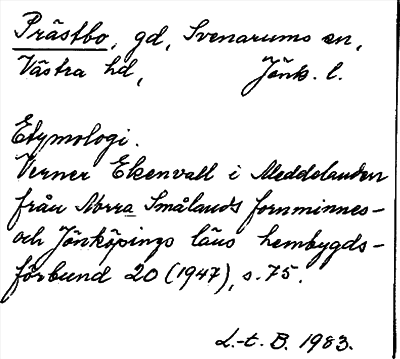 Prästbo, gd, Svenarums sn,
Västra hd, Jönk. l.
Etymologi.
Verner Ekenvall i Meddelanden
från Norra Smålands fornminnes-
och Jönköpings läns hembygds-
förbund 20 (1947), s. 75.
L.-t. B. 1983.